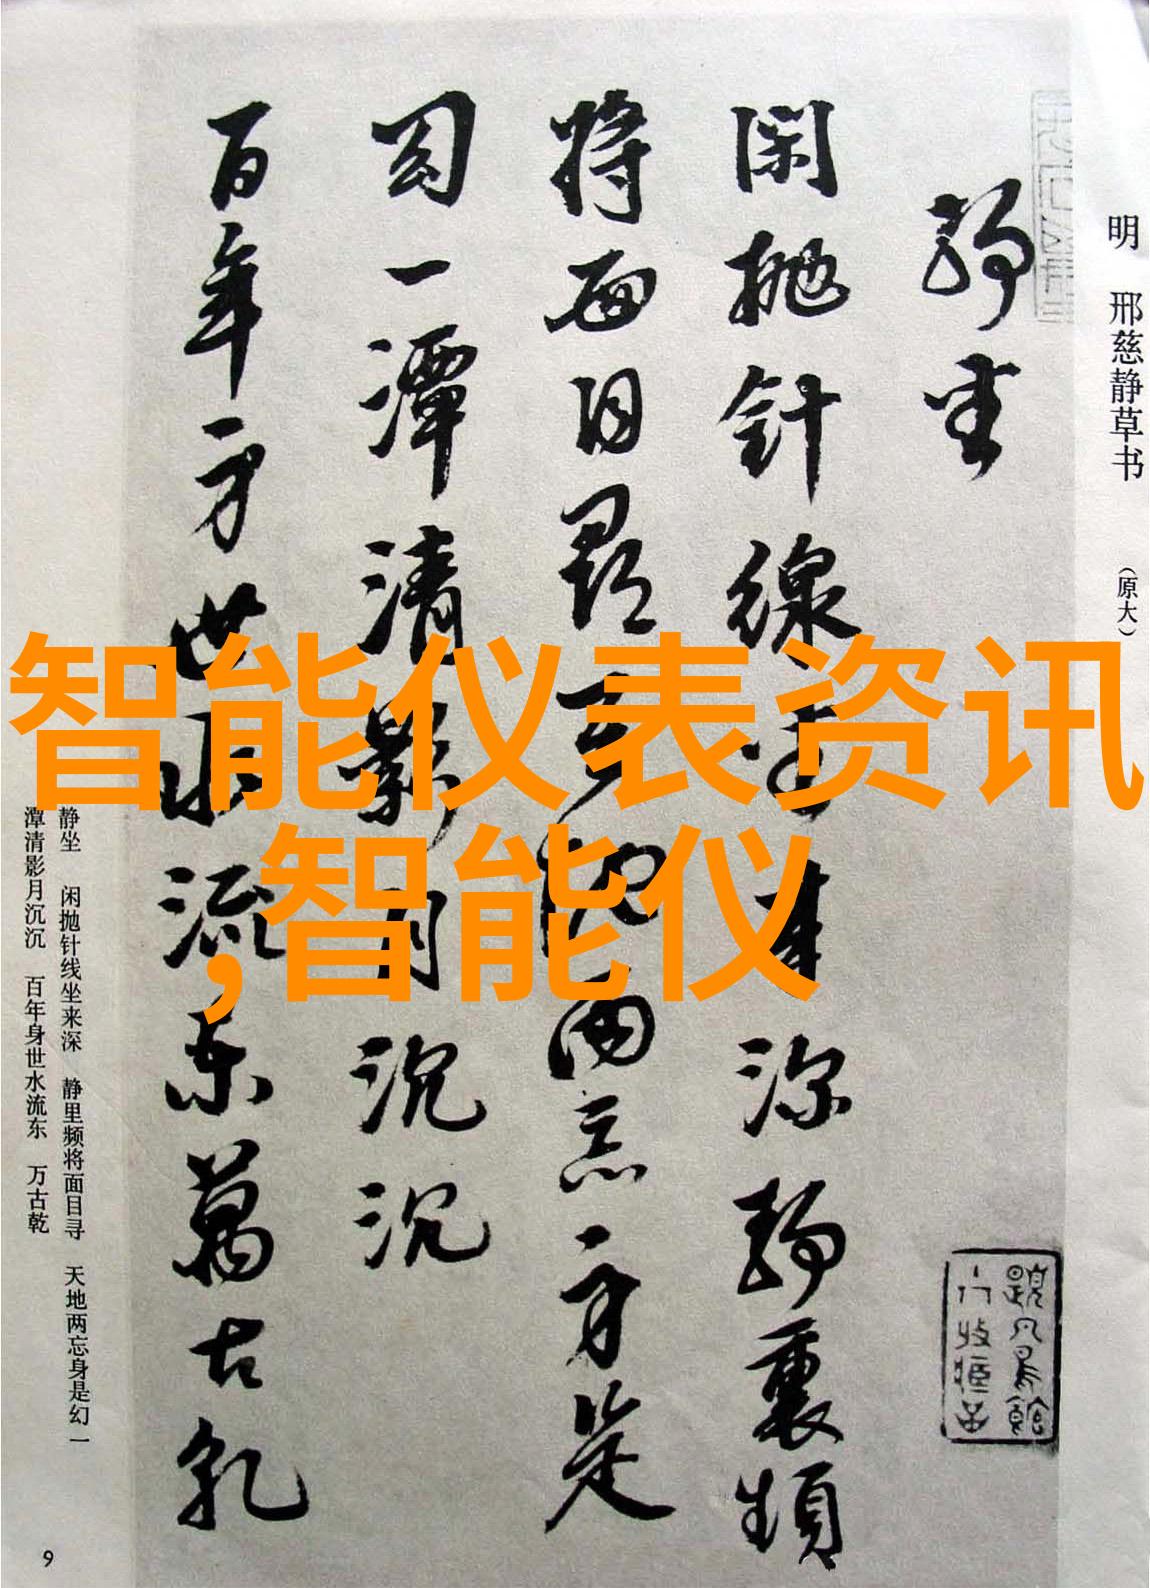 明 邢慈静草书 （原大）
静坐
闲抛针线坐来深静里频
将面目寻天地两忘身是
幻一潭清影月沉沉
百年身世水流东萬古乾
静坐 闲抛针线坐来深 静里频将面目寻 天地两忘身是幻 一
潭清影月沉沉 百年身世水流东 万古乾
9
智能仪表资讯
,智能仪